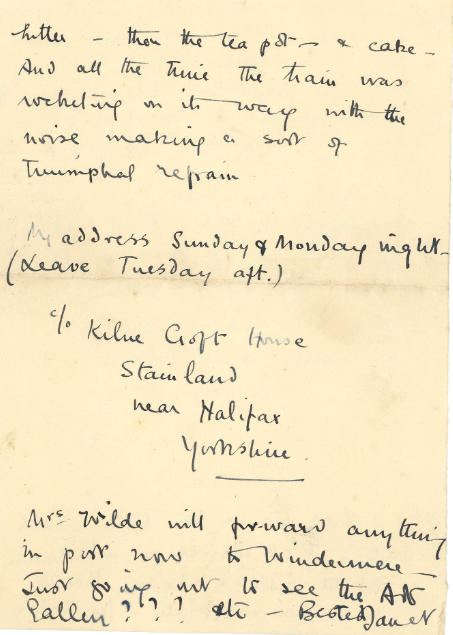 butter – then the tea pot – & cake –
And all the time the train was
rocketing on its way with the
noise making a sort of
triumphal refrain
My address Sunday & Monday night –
(Leave Tuesday aft.)
c/o Kilne Croft House
Stainland
near Halifax
Yorkshire.
Mrs Wilde will forward anything
in post now to Windermere –
Just going out to see the Art
Gallery ? ? ? etc – Best Janet